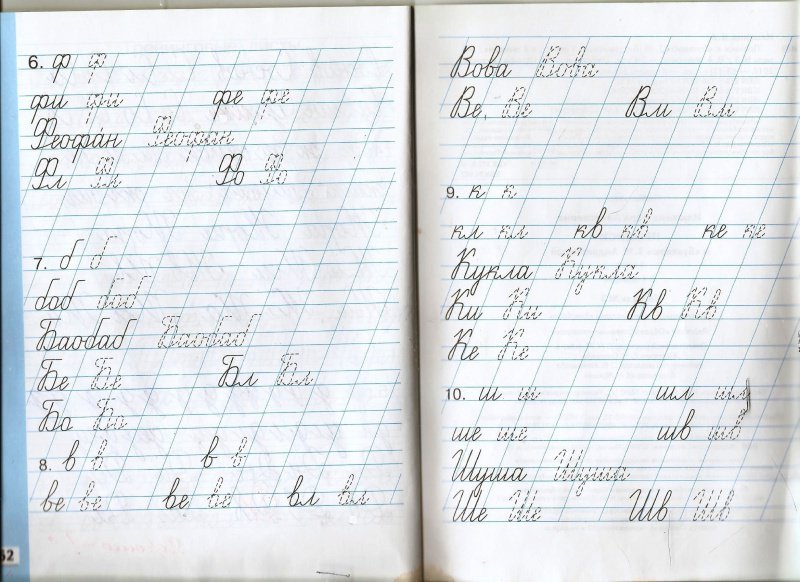 6. ф ф
фи фи фе фе
Феофан Феофан
Фл Фл Фо Фо
7. б б
боб боб
Баобаб Баобаб
Бе Бе Бл Бл
Бо Бо
8. в в в в
ве ве ве ве вл вл
32
Вова Вова
Ве, Ве Вм Вм
9. к к
кл кл кв кв ке ке
Кукла Кукла
Ки Ки Кв Кв
Ке Ке
10. ш ш шл шл
ше ше шв шв
Шуша Шуша
Ше Ше Шв Шв